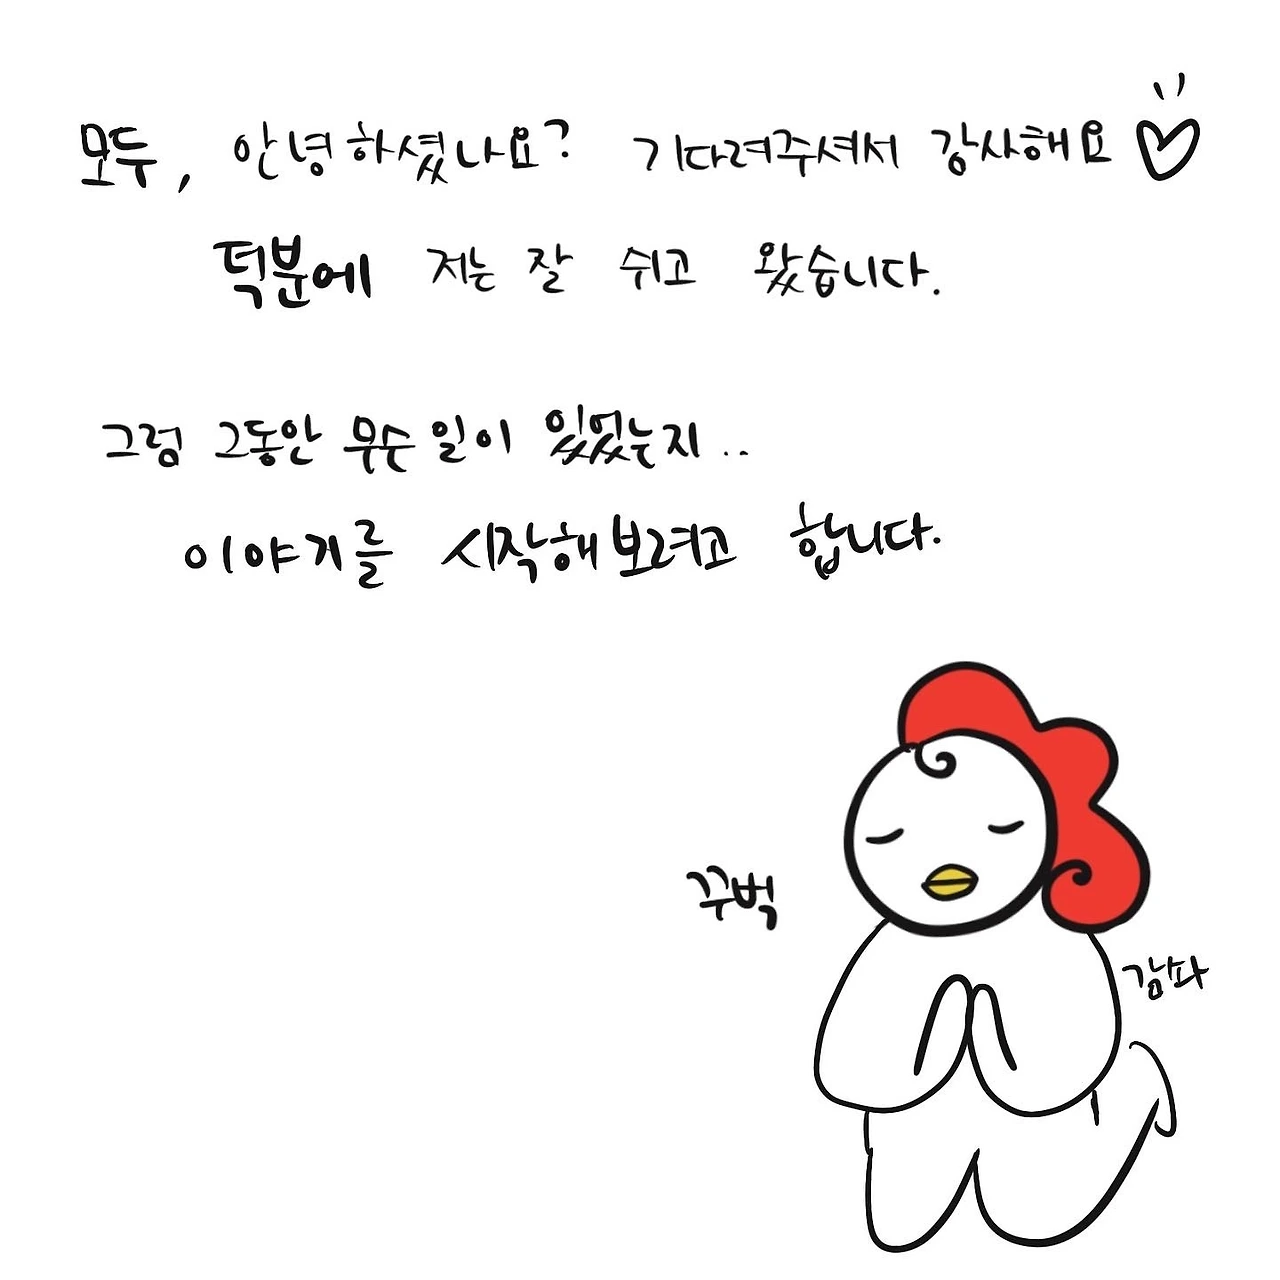 모두, 안녕하셨나요? 기다려주셔서 감사해요♡
턱분에 저는 잘 쉬고 왔습니다.
그럼 그동안 무슨 일이 있었는지..
이야기를 시작해보려고 합니다.
꾸벅
감솨